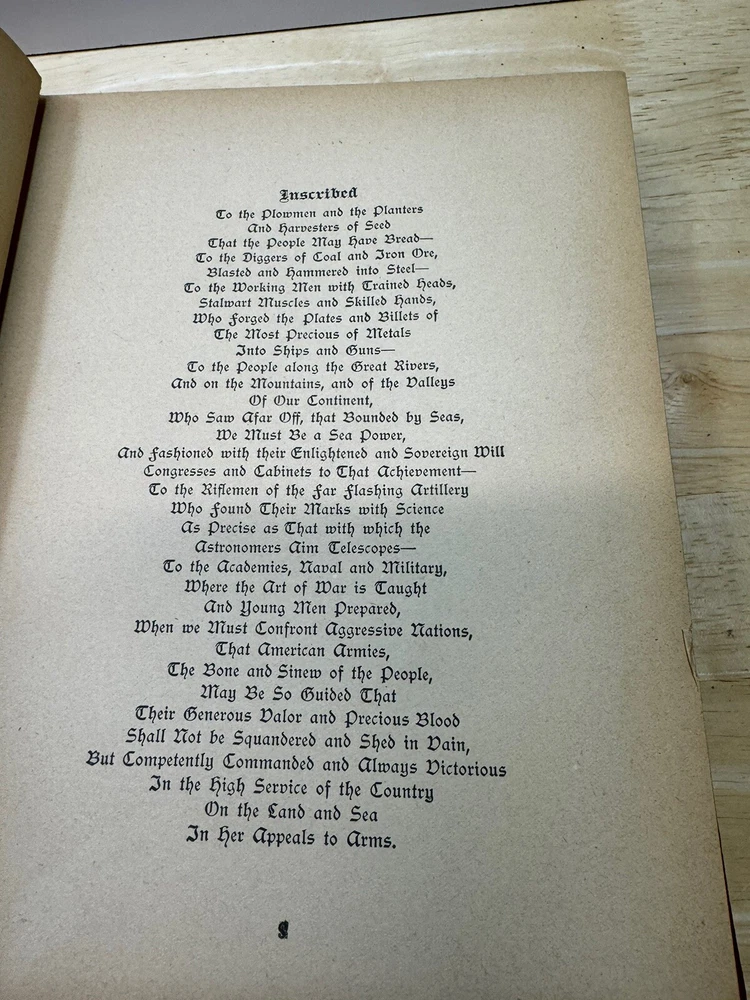 Inscribed
To the Plowmen and the Planters
And Harvesters of Seed
That the People May Have Bread—
To the Diggers of Coal and Iron Ore,
Blasted and Hammered into Steel—
To the Working Men with Trained Heads,
Stalwart Muscles and Skilled Hands,
Who Forged the Plates and Billets of
The Most Precious of Metals
Into Ships and Guns—
To the People along the Great Rivers,
And on the Mountains, and of the Valleys
Of Our Continent,
Who Saw Afar Off, that Bounded by Seas,
We Must Be a Sea Power,
And Fashioned with their Enlightened and Sovereign Will
Congresses and Cabinets to That Achievement—
To the Riflemen of the Far Flashing Artillery
Who Found Their Marks with Science
As Precise as That with which the
Astronomers Aim Telescopes—
To the Academies, Naval and Military,
Where the Art of War is Taught
And Young Men Prepared,
When we Must Confront Aggressive Nations,
That American Armies,
The Bone and Sinew of the People,
May Be So Guided That
Their Generous Valor and Precious Blood
Shall Not be Squandered and Shed in Vain,
But Competently Commanded and Always Victorious
In the High Service of the Country
On the Land and Sea
In Her Appeals to Arms.